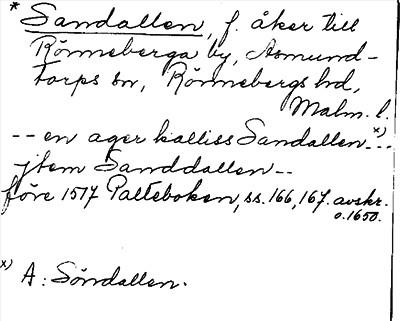 * Sandallen, f. åker till
Rönneberga by, Asmund-
torps sn, Rönnebergs hd,
Malm. l.
-- en ager kalliss Sandallen x) --
jtem Sanddallen --
före 1517 Palteboken, ss. 166, 167. avskr.
o. 1650.
x) A: Söndallen.